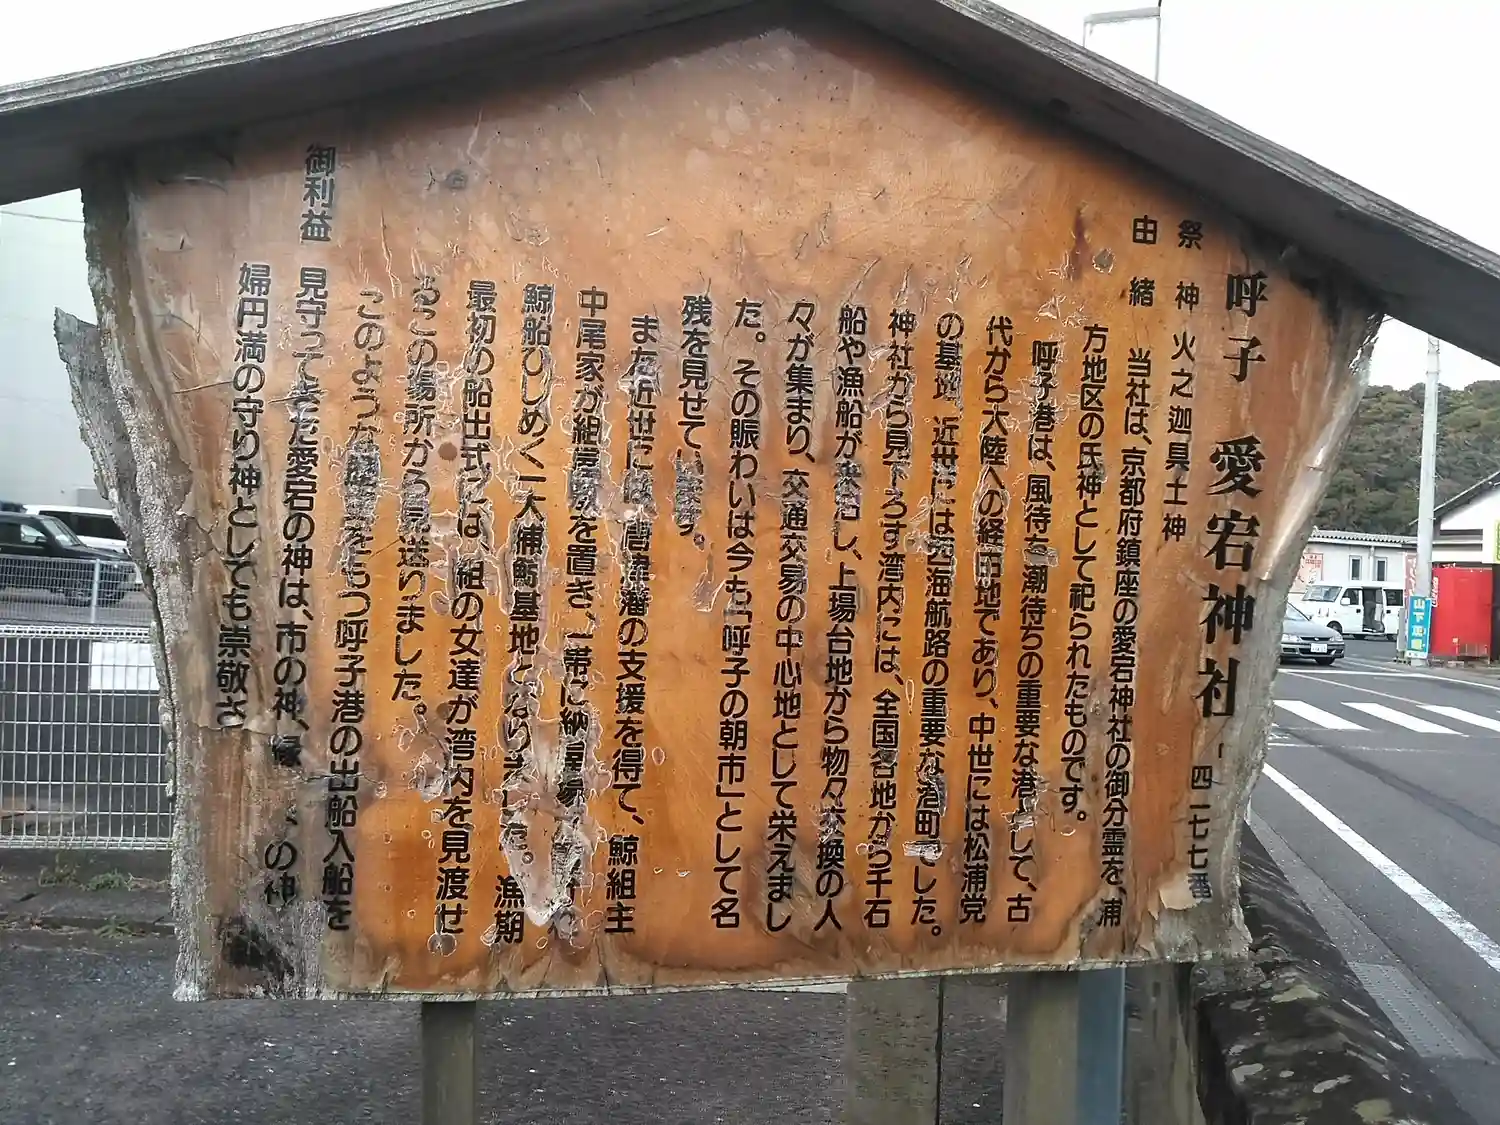 呼子 愛宕神社
四一七七番
祭神 火之迦具土神
由緒 当社は、京都府鎮座の愛宕神社の御分霊を、浦
方地区の氏神として祀られたものです。
呼子港は、風待ち潮待ちの重要な港として、古
代から大陸への経由地であり、中世には松浦党
の基地、近世には西海航路の重要な港町でした。
神社から見下ろす湾内には、全国各地から千石
船や漁船が来泊し、上場台地から物々交換の人
々が集まり、交通交易の中心地として栄えまし
た。その賑わいは今も「呼子の朝市」として名
残を見せています。
また近世には、唐津藩の支援を得て、鯨組主
中尾家が組を置き、一帯に納屋
鯨船ひしめく一大捕鯨基地となりました。漁期
最初の船出式には、組の女達が湾内を見渡せ
るこの場所から見送りました。
このような をもつ呼子港の出船入船を
御利益 見守ってきた愛宕の神は、市の神、縁 の神
婦円満の守り神としても崇敬さ
山下